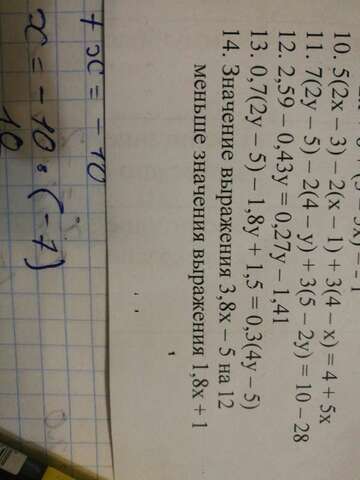 10. 5(2x – 3) – 2(x – 1) + 3(4 – x) = 4 + 5x
11. 7(2y – 5) – 2(4 – y) + 3(5 – 2y) = 10 – 28
12. 2,59 – 0,43y = 0,27y – 1,41
13. 0,7(2y – 5) – 1,8y + 1,5 = 0,3(4y – 5)
14. Значение выражения 3,8x – 5 на 12
меньше значения выражения 1,8x + 1
+ x = – 10
x = – 10 : (– 1)
10